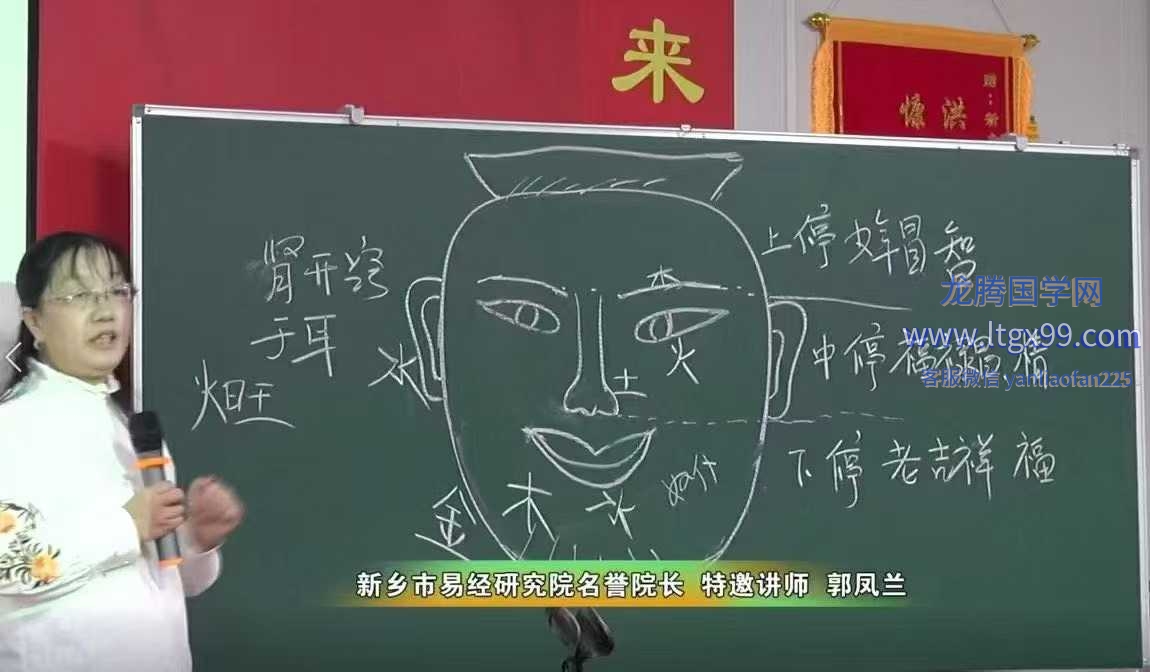 来
洪
慷
肾开窍
于耳
上停 少年冒 智
龙腾国学网
www.ltgx99.com
客服微信 yanliaofan225
木
火
水
土
中停 福禄
下停 老吉祥 福
金 木 水
新乡市易经研究院名誉院长 特邀讲师 郭凤兰